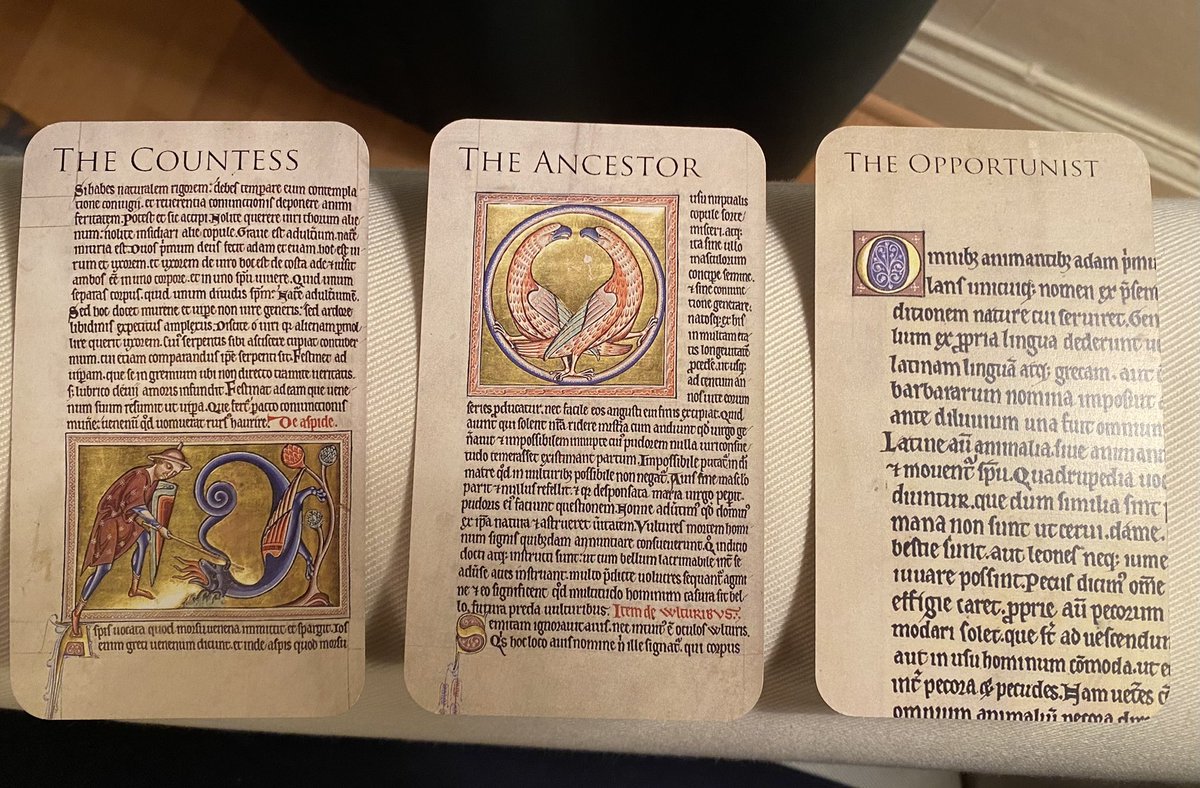 THE COUNTESS
Si habes naturalem rigorem: debes temperare eum contempla
tione coniugii. et reverentia coniunctionis deponere animi
feritatem. Potest et sic accipi. Nolite querere viri thorum alie
num. nolite insidiari alie copule. Grave est adulterium. nature
iniuria est. Duos primum deus fecit adam et evam. hoc est vi
rum et uxorem. et uxorem de viro hoc est de costa ade. et iussit
ambos esse in uno corpore. et in uno spiritu vivere. Quid unum
separas corpus. quid unum dividis spiritum? Nature adulterium est.
Sed hoc docet murene et vipe non iure generis: sed ardore
libidinis expetitus amplexus. Discite o viri qui alienam
lire querit uxorem. cui serpentis sibi asciscere cupiat contuber
nium. cui etiam comparandus ipse serpenti sit. Festinet ad
vipam. que se in gremium ubi non directo tramite veritatis.
lubrico amoris infundit. Festinat ad eam que vene
num suum resumit ut vipa. Que pacto coniunctionis
munere venenum quod vomuerat haurire. De aspide.
Aspis vocata quod morsu venena immittit et spargit. ios
enim greci venenum dicunt. et inde aspis quod morsu
THE ANCESTOR
usu nuptialis
copule sorte
misceri. atq:
ita sine ullo
masculorum
concipe semine.
& sine coniunc
tione generare.
natosq: ex his
in multam eta
tis longevitate
pcede. ut usq:
ad centum an
nos vite eorum
series pducatur. nec facile eos angusti evi finis excipiat. Quid
aiunt qui solent nostra ridere misteria cum audiunt quod virgo ge
nerauit & impossibilem innupte cuius pudorem nulla viri consue
tudo temerasset existimant partum. Impossibile putatur in dei
matre quod in vulturibus possibile non negatur. Avis sine masculo
parit & nullus refellit: & quia desponsata maria virgo peperit.
pudori eius faciunt questionem. Nonne advertimus quod dominus
ex ipsa natura astrueret veritatem. Vultures mortem homi
num signis quibusdam annuntiare consueverunt. Quo indicio
docti atq: instructi sunt: ut cum bellum lacrimabile inter se
adverse acies instruant. multo predicte volucres sequantur agmi
ne & eo significent quod multitudo hominum casura sit bel
lo. futura preda vulturibus. Item de wlturibus.
Semitam ignoravit avis. nec intuitus est oculos wlturis.
Quis hoc loco avis nomine nisi ille signatur. qui corpus
THE OPPORTUNIST
Omnibz animantibz adam primu
lans unicuiq: nomen ex presem
ditionem nature cui serviret. Gen
tium ex propria lingua dederunt
latinam linguam atq: grecam. aut
barbararum nomina imposuit
ante diluvium una fuit omnium
Latine autem animalia. sive animan
& moventur spiritu. Quadrupedia
duintur. que dum similia sint
mana non sunt ut cervi. dame.
bestie sunt. aut leones neq: iume
iuuare possint. Pecus dicimus omne
effigie caret. proprie autem pecorum
modari solet. que sunt ad vescendum
aut in usu hominum commoda. ut
inter pecora & pecudes. Nam veteres
omnium animalium pecora